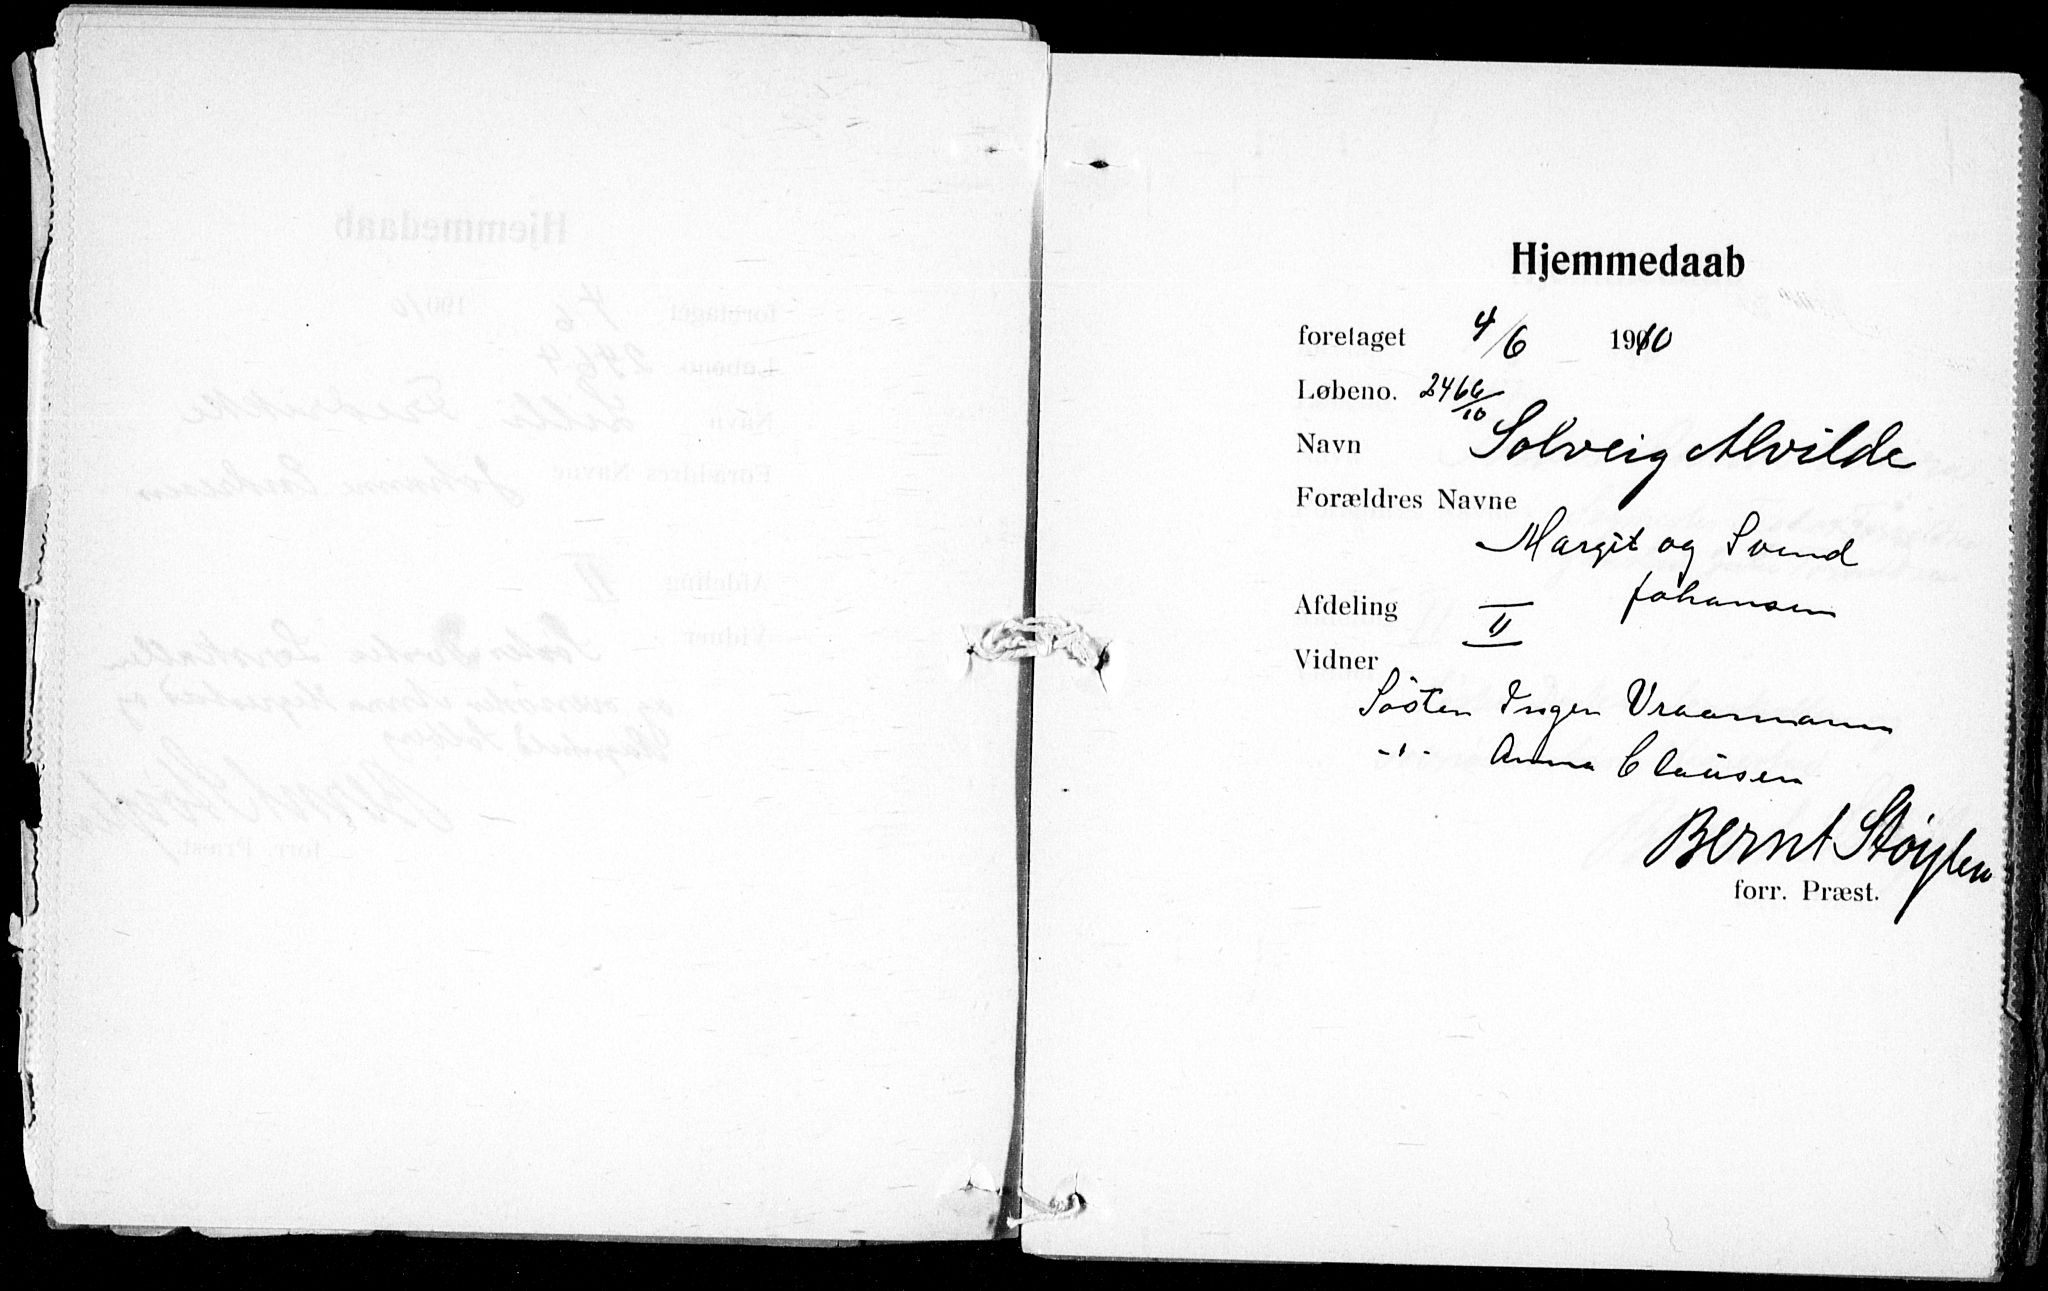 Hjemmedaab
foretaget 4/6 1910
Løbeno. 2466/10
Navn Solveig Alvilde
Forældres Navne
Margit og Svend
Johansen
Afdeling II
Vidner
Søster Inger Vraamann
-"- Anna Clausen
Bernt Støylen
forr. Præst.